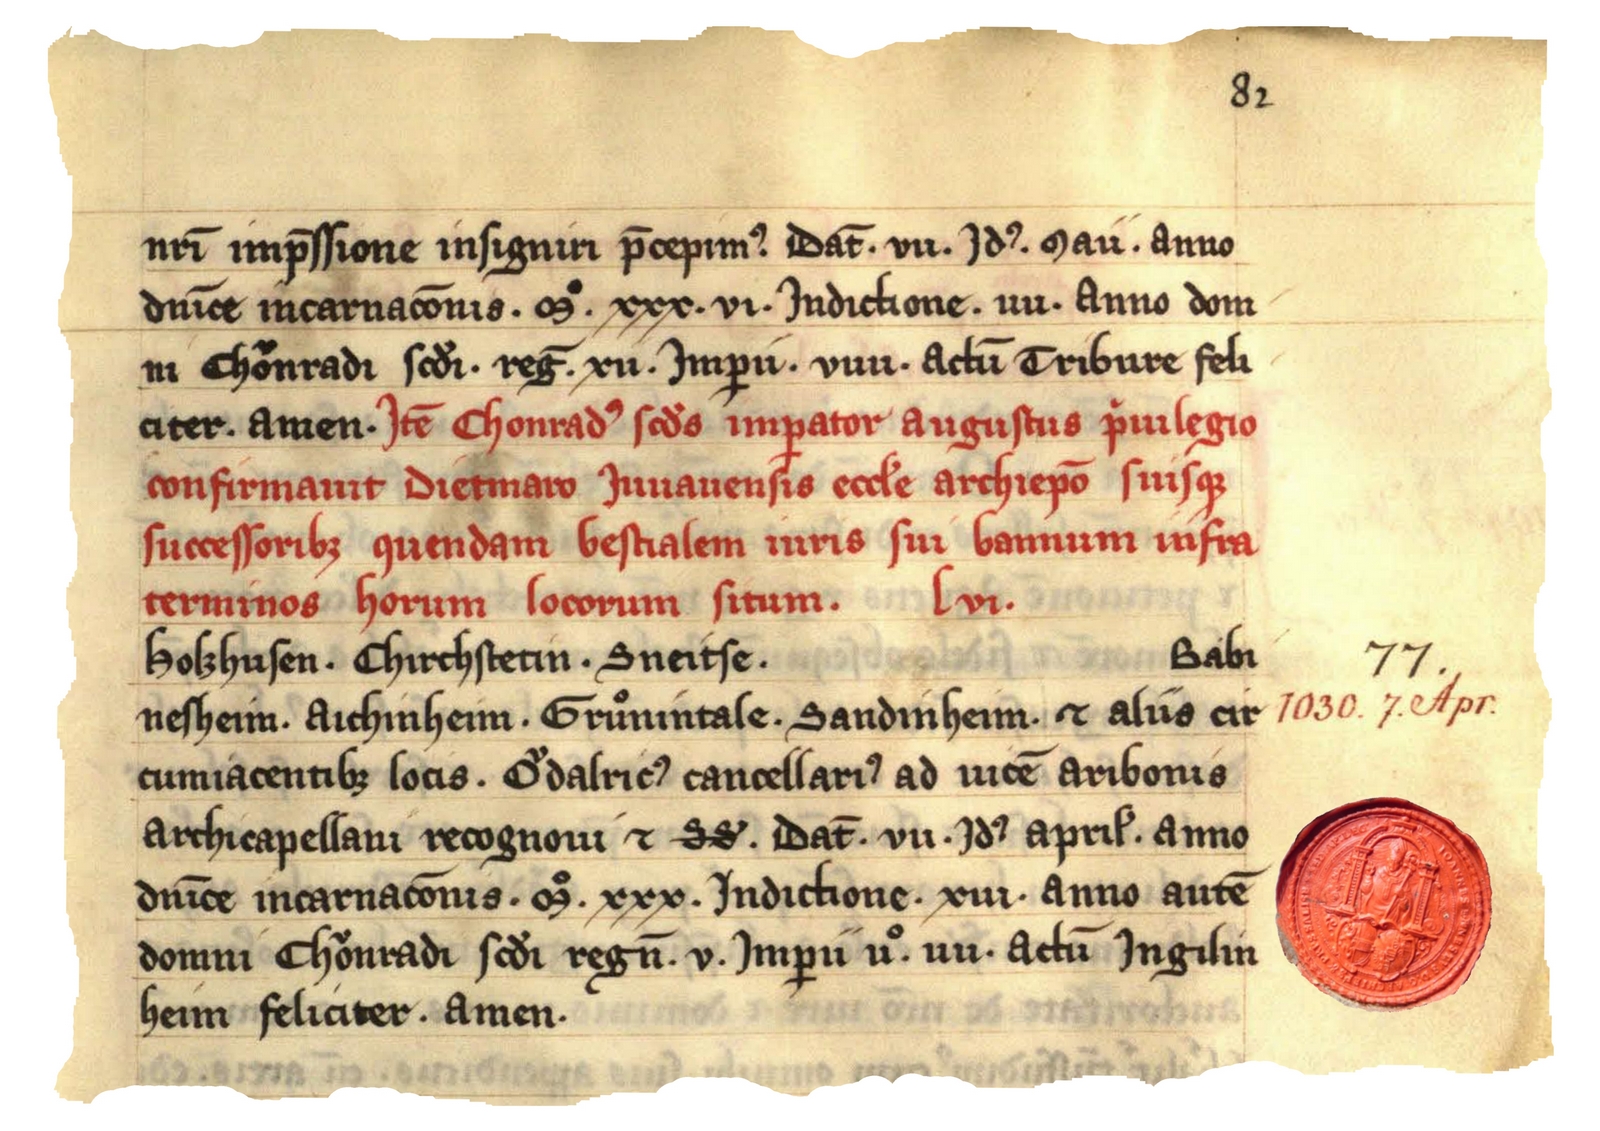 82
nrī imp̄ssione insigniri p̄cepim⁹. Dat̄. vii. Id⁹. Maii. Anno
dn̄ice incarnac̄onis. Mͦ. xxx. vi. Indictione. iiii. Anno dom
ni Chǒnradi scd̄i. reḡ. xii. Imꝑii. viiii. Actū Tribure feli
citer. Amen. Itē Chonrad⁹ scd̄s imꝑator augustus pͥuilegio
confirmauit Dietmaro Iuuauensis eccl̄e archiep̄o suisqꝫ
successoribꝫ quendam bestialem iuris sui bannum infra
terminos horum locorum situm. Lvi.
Holzhusen. Chirchstetin. Sneitse. Babi
nesheim. Aichinheim. Grůnintale. Sandinheim. ⁊ aliis cir
77.
1030. 7. Apr.
cumiacentibꝫ locis. Ǒdalric⁹ cancellari⁹ ad uicē Aribonis
Archicapellani recognoui ⁊ ss. Dat̄. vii. Id⁹ April̄. Anno
dn̄ice incarnac̄onis. Mͦ. xxx. Indictione. xiii. Anno autē
domni Chǒnradi scd̄i regn̄. v. Imꝑii uͦ. iiii. Actū Ingilin
heim feliciter. Amen.